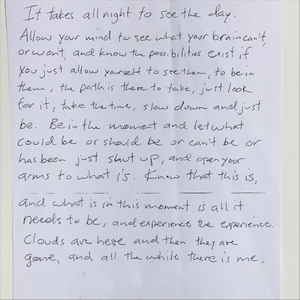 It takes all night to see the day.
Allow your mind to see what your brain can't,
or won't, and know the possibilities exist if
you just allow yourself to see them, to be in
them, the path is there to take, just look
for it, take the time, slow down and just
be. Be in the moment and let what
could be or should be or can't be or
has been just shut up, and open your
arms to what is. Know that this is,
and what is in this moment is all it
needs to be, and experience the experience.
Clouds are here and then they are
gone, and all the while there is me.